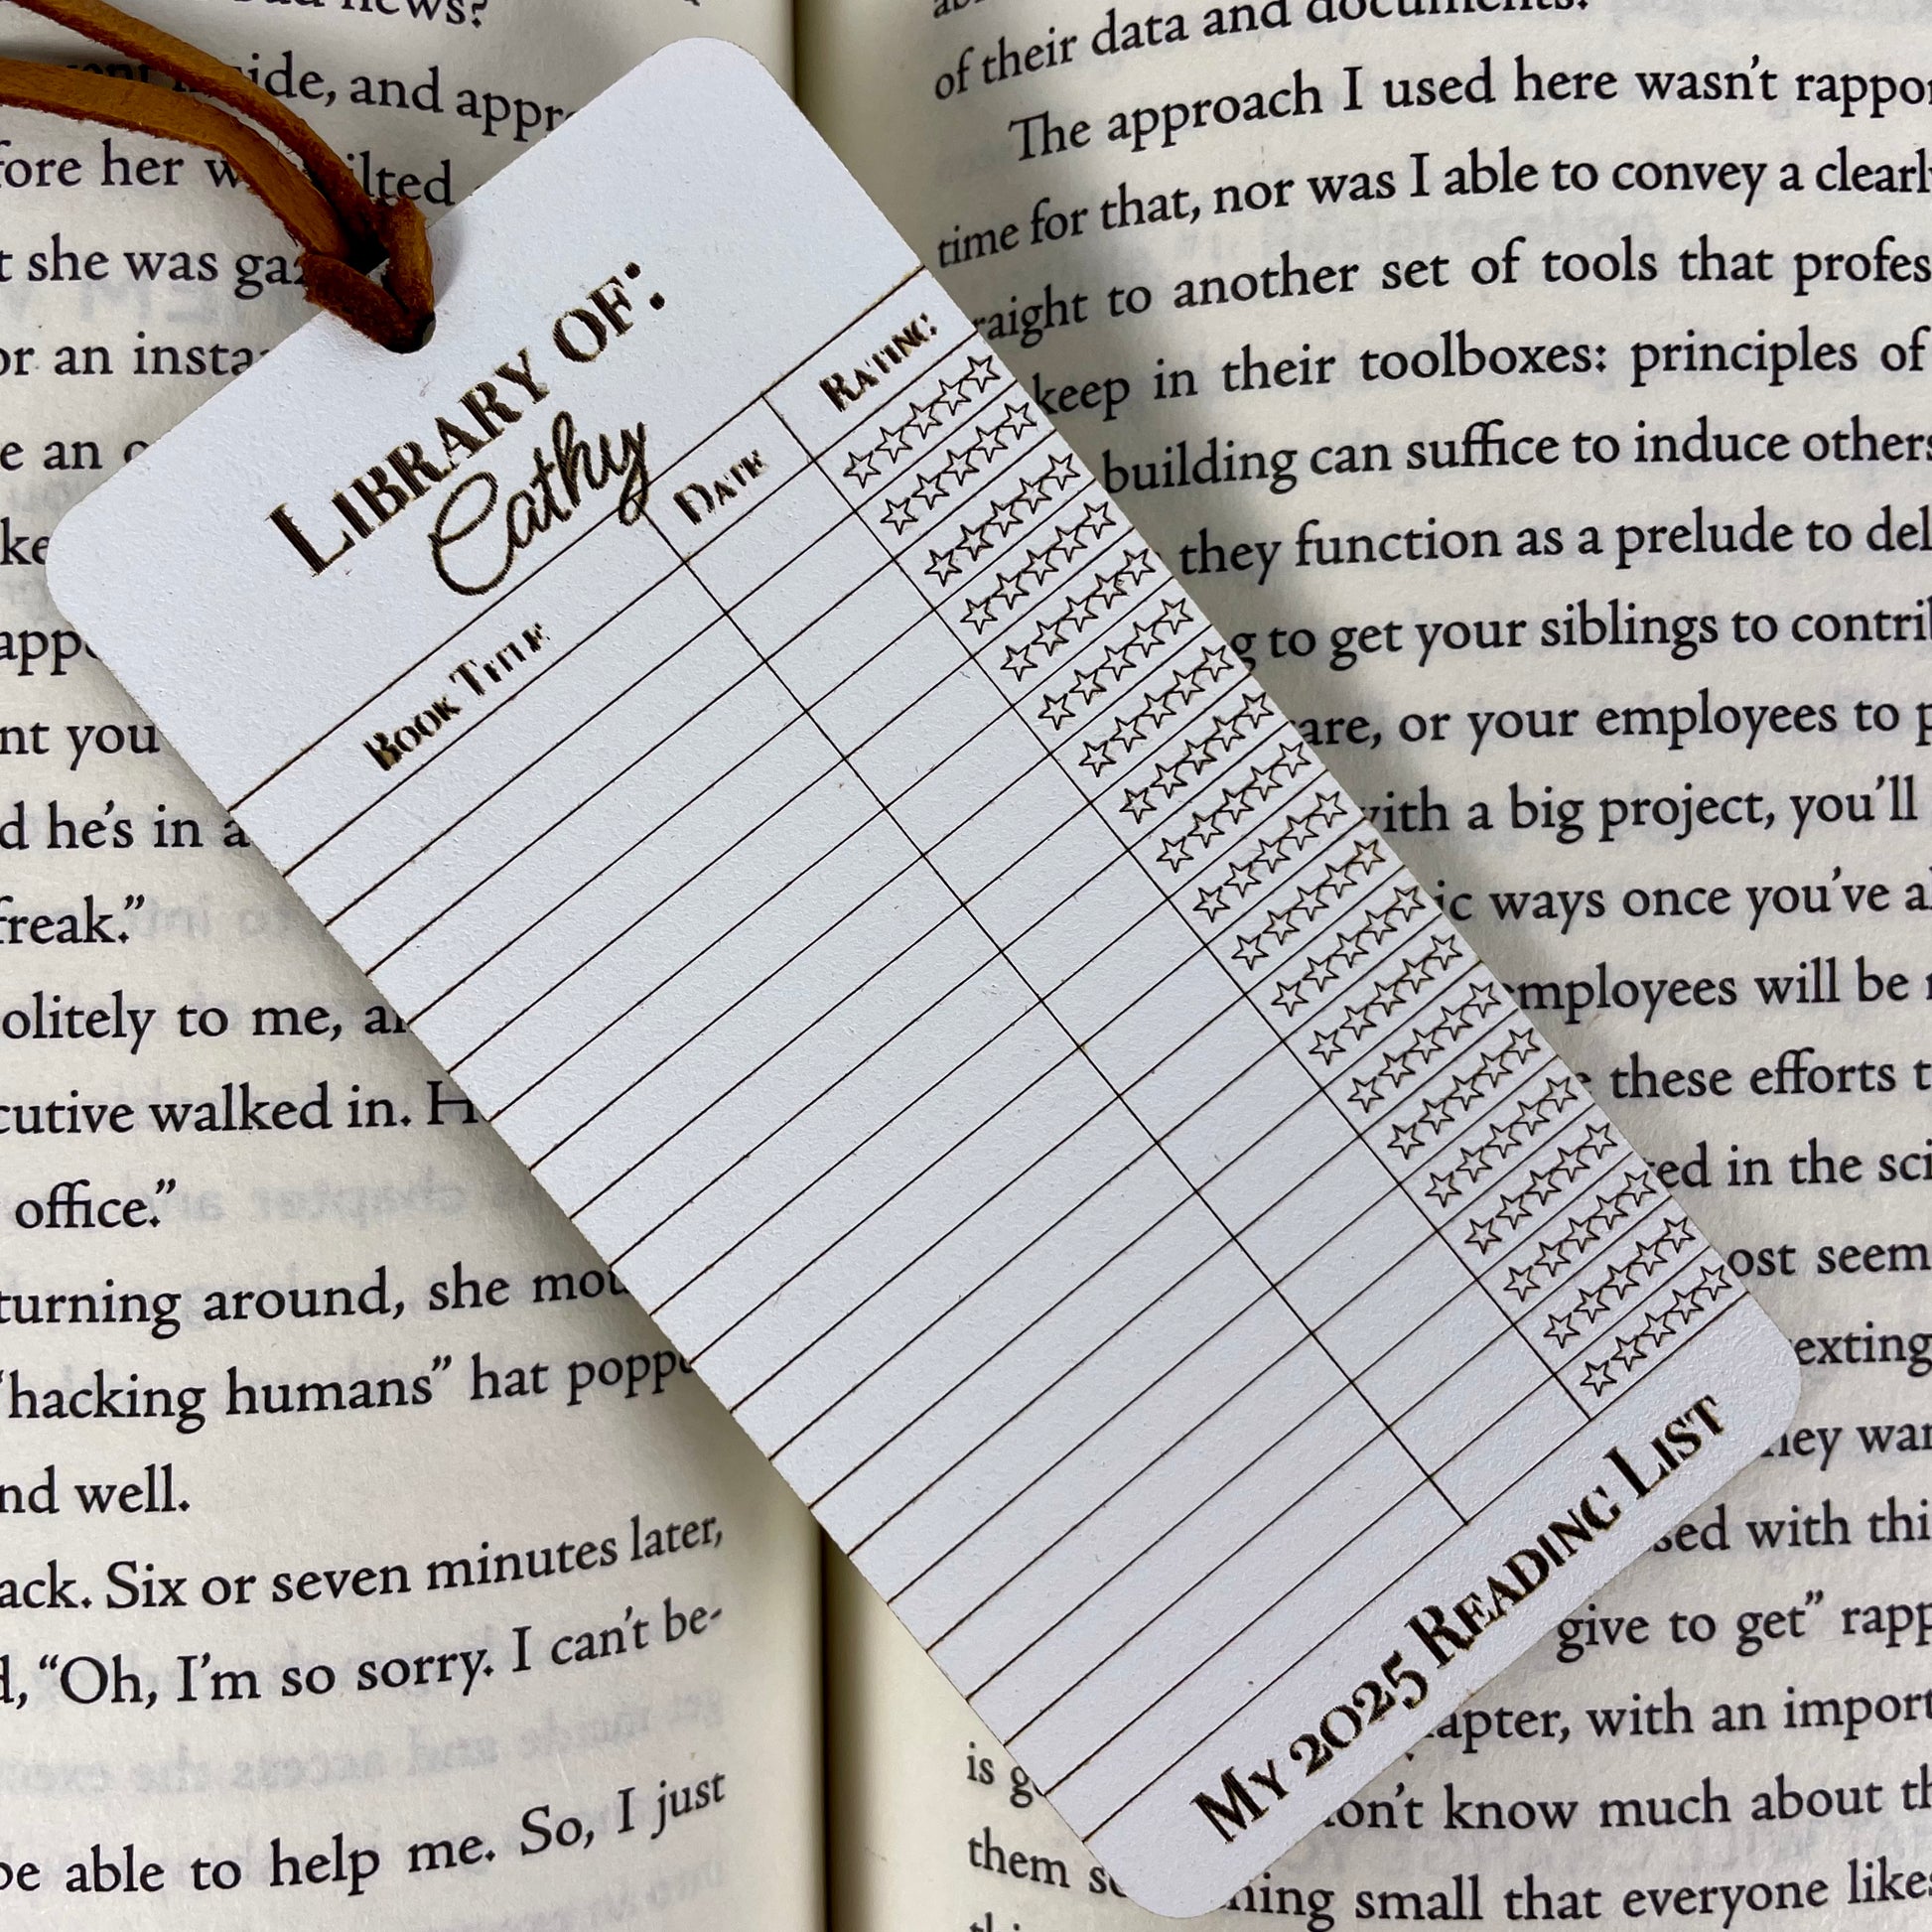 LIBRARY OF:
Cathy
BOOK TITLE DATE RATING
MY 2025 READING LIST
bad news?
went inside, and
fore her w ilted
t she was
or an
e an
nt you
d he's in a
freak."
olitely to me,
cutive walked in.
office."
turning around, she
"hacking humans" hat
nd well.
ack. Six or seven minutes later,
d, "Oh, I'm so sorry. I can't be-
be able to help me. So, I just
of their data and documents.
The approach I used here wasn't
time for that, nor was I able to convey a
raight to another set of tools that
keep in their toolboxes: principles of
building can suffice to induce others
they function as a prelude to
g to get your siblings to
are, or your employees to
with a big project, you'll
ic ways once you've
employees will be
these efforts
ed in the
ost seem
exting
hey
sed with
give to get"
apter, with an
is
on't know much about
them
hing small that everyone